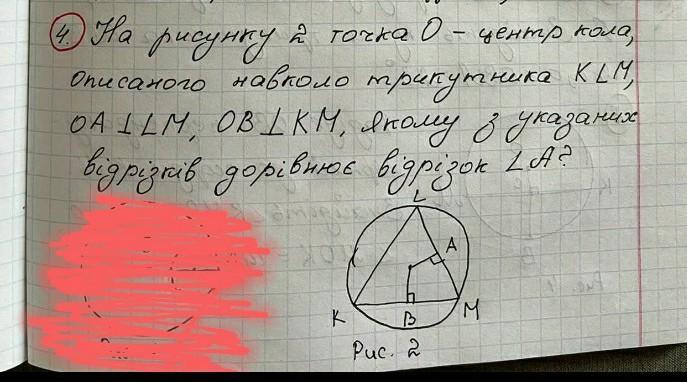 4. На рисунку 2 точка О - центр кола,
описаного навколо трикутника KLM,
OA⊥LM, OB⊥KM. Якому з указаних
відрізків дорівнює відрізок LA?
L
A
K
B
M
Рис. 2